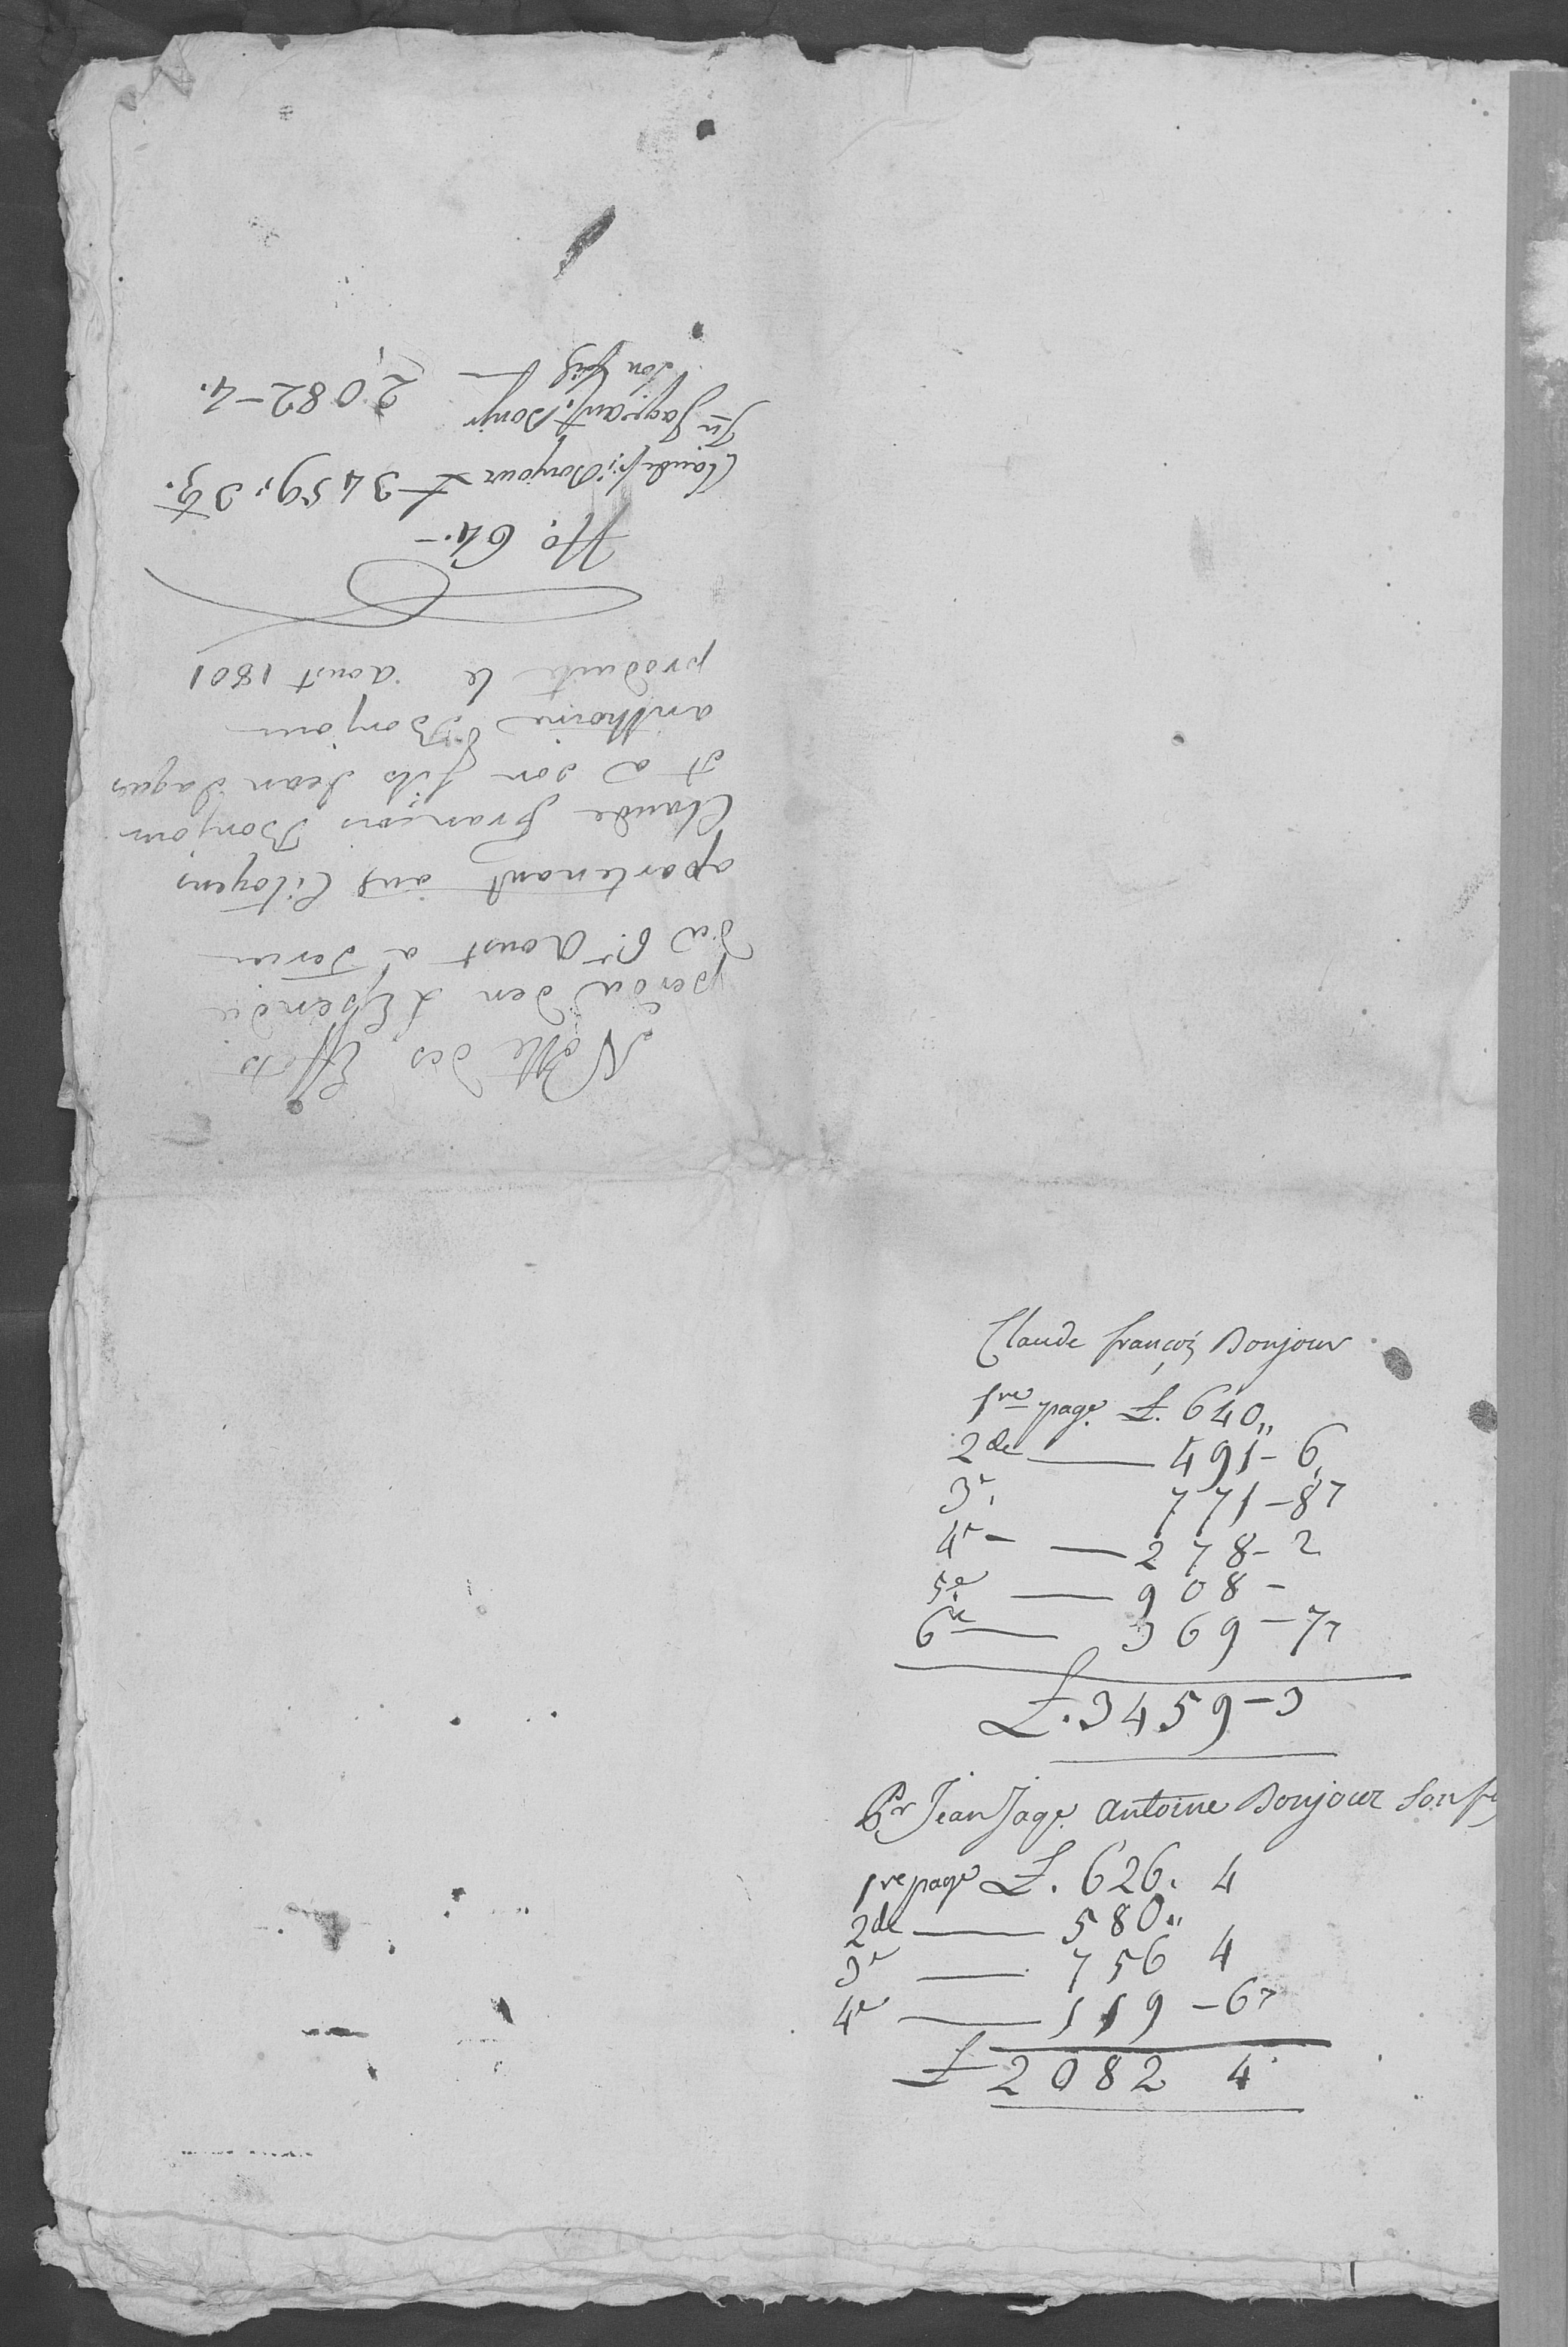 Notte des Effets
perdu den L'Ensendie
du 6r. Aoust a
apartenant aux Citoyens
Claude François Bonjour
et a son fils Jean Jaques
anthoine Bonjour
produite le aoust 1801
No. 64.-
Claude f: Bonjour £ 3459,,3
Jn Jaq: ant: Bonjr
son fils 2082-4.
Claude françois Bonjour
1re page £. 640,,
2de — 491-6
3e 771-8
4e — 278-2
5e — 908-
6e — 369-7
£. 3459-3
Pr Jean Jaqe. Antoine Bonjour son
1re page £. 626. 4
2de — 580,,
3e — 756 4
4e — 119-6
£ 2082 4